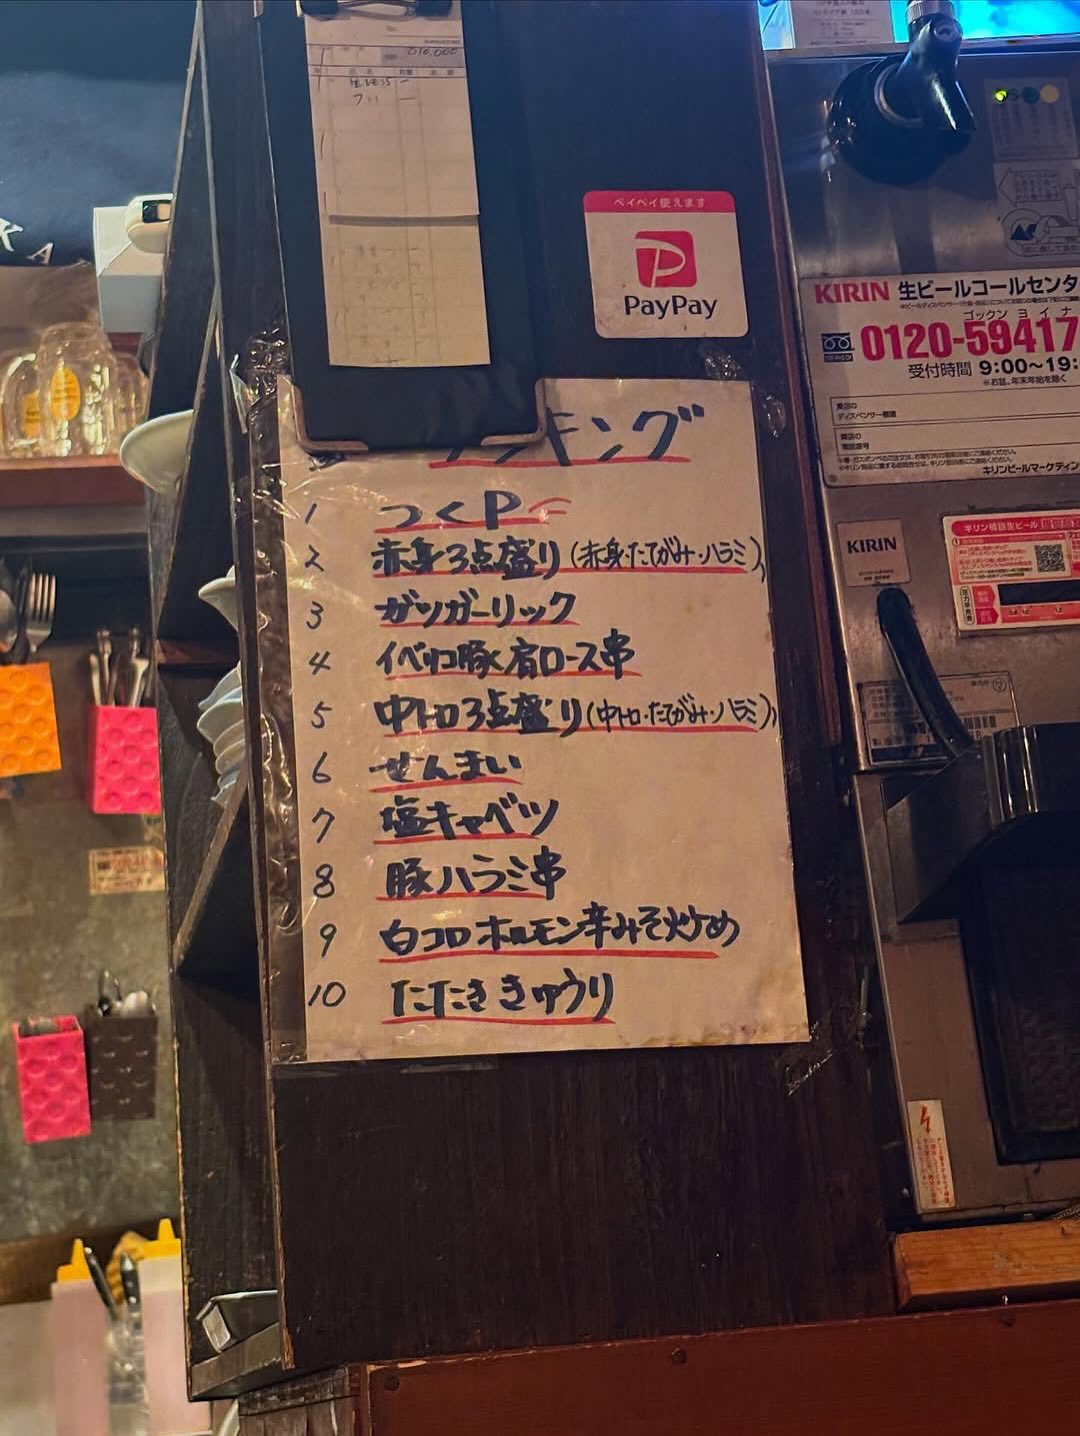 No.
010,000
フリー
KA
ペイペイ使えます
PayPay
KIRIN 生ビールコールセンタ
ゴックン ヨイナ
0120-59417
受付時間 9:00〜19:
※お盆、年末年始を除く
貴店の
ディスペンサー機種
貴店の
電話番号
キリンビールマーケティン
KIRIN
キリン樽詰生ビール
ンキング
1 つくP
2 赤身3点盛り(赤身・たてがみ・ハラミ)
3 ガツガーリック
4 イベリコ豚肩ロース串
5 中トロ3点盛り(中トロ・たてがみ・ハラミ)
6 せんまい
7 塩キャベツ
8 豚ハラミ串
9 白コロホルモン辛みそ炒め
10 たたききゅうり